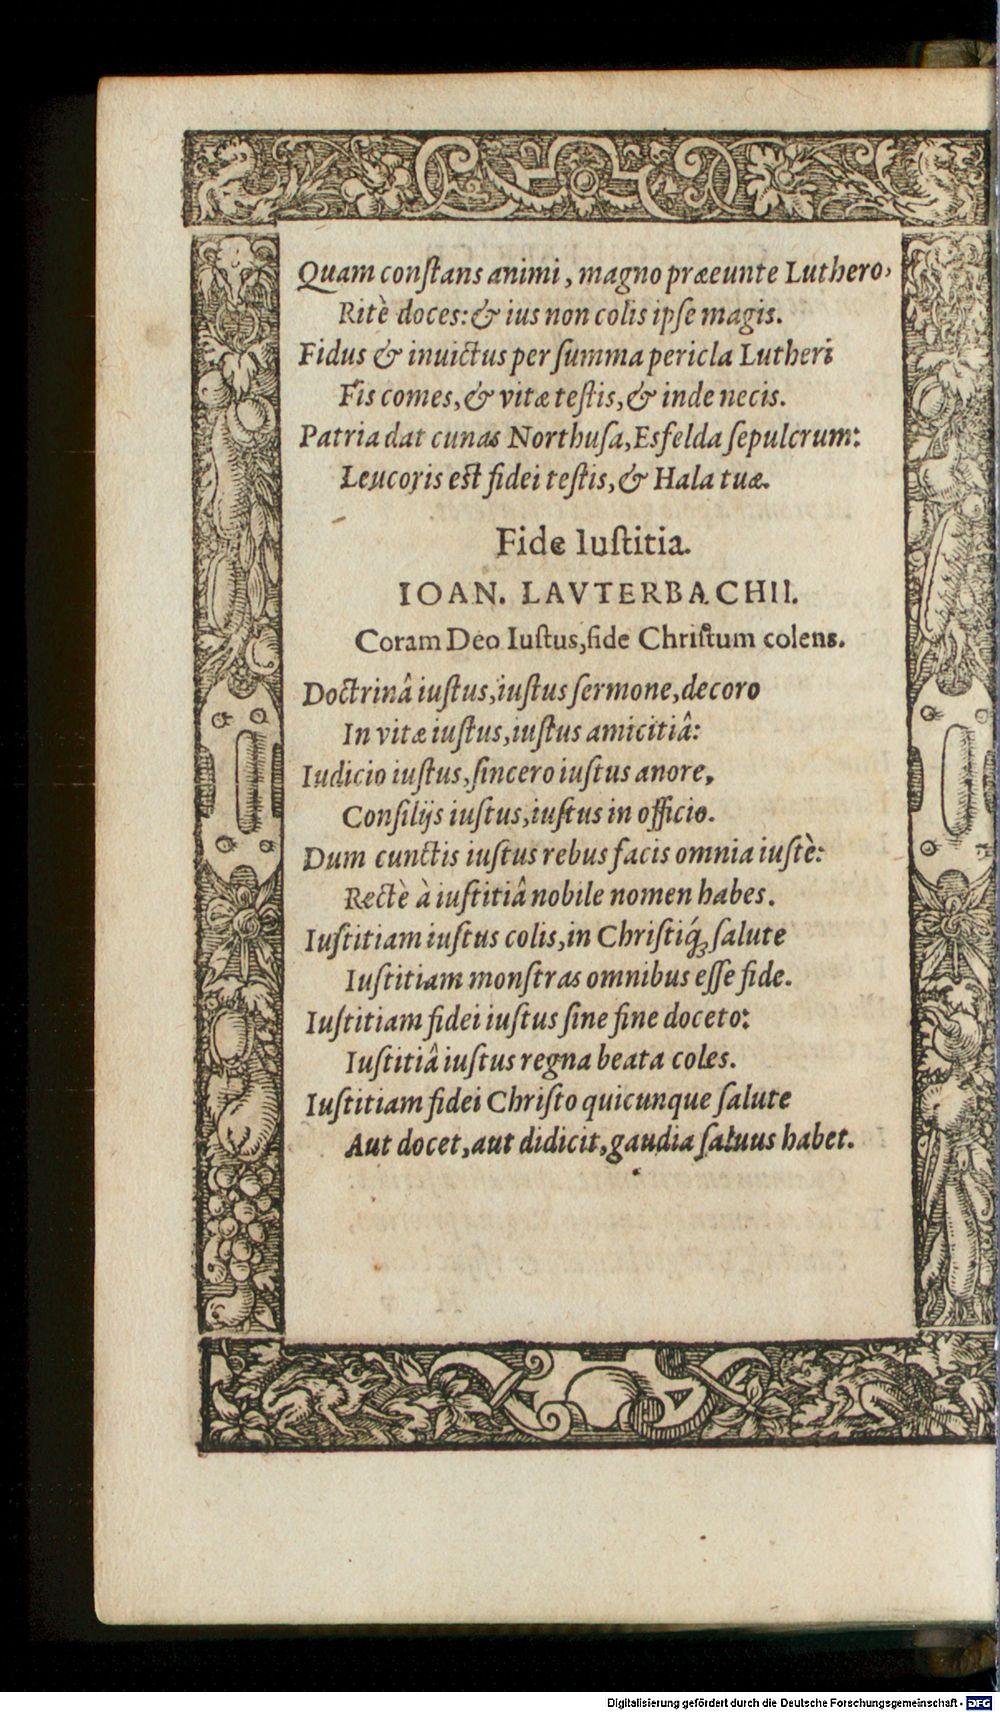 Quam conſtans animi, magno præeunte Luthero,
Ritè doces: & ius non colis ipſe magis.
Fidus & inuictus per ſumma pericla Lutheri
Fis comes, & vitæ teſtis, & inde necis.
Patria dat cunas Northuſa, Esfelda ſepulcrum:
Leucoris eſt fidei teſtis, & Hala tuæ.
Fide Iuſtitia.
IOAN. LAVTERBACHII.
Coram Deo Iuſtus, fide Chriſtum colens.
Doctrinâ iuſtus, iuſtus ſermone, decoro
In vitæ iuſtus, iuſtus amicitiâ:
Iudicio iuſtus, ſincero iuſtus anore,
Conſilijs iuſtus, iuſtus in officio.
Dum cunctis iuſtus rebus facis omnia iuſtè:
Rectè à iuſtitiâ nobile nomen habes.
Iuſtitiam iuſtus colis, in Chriſtiq́; ſalute
Iuſtitiam monſtras omnibus eſſe fide.
Iuſtitiam fidei iuſtus ſine fine doceto:
Iuſtitiâ iuſtus regna beata coles.
Iuſtitiam fidei Chriſto quicunque ſalute
Aut docet, aut didicit, gaudia ſaluus habet.
Digitalisierung gefördert durch die Deutsche Forschungsgemeinschaft - DFG